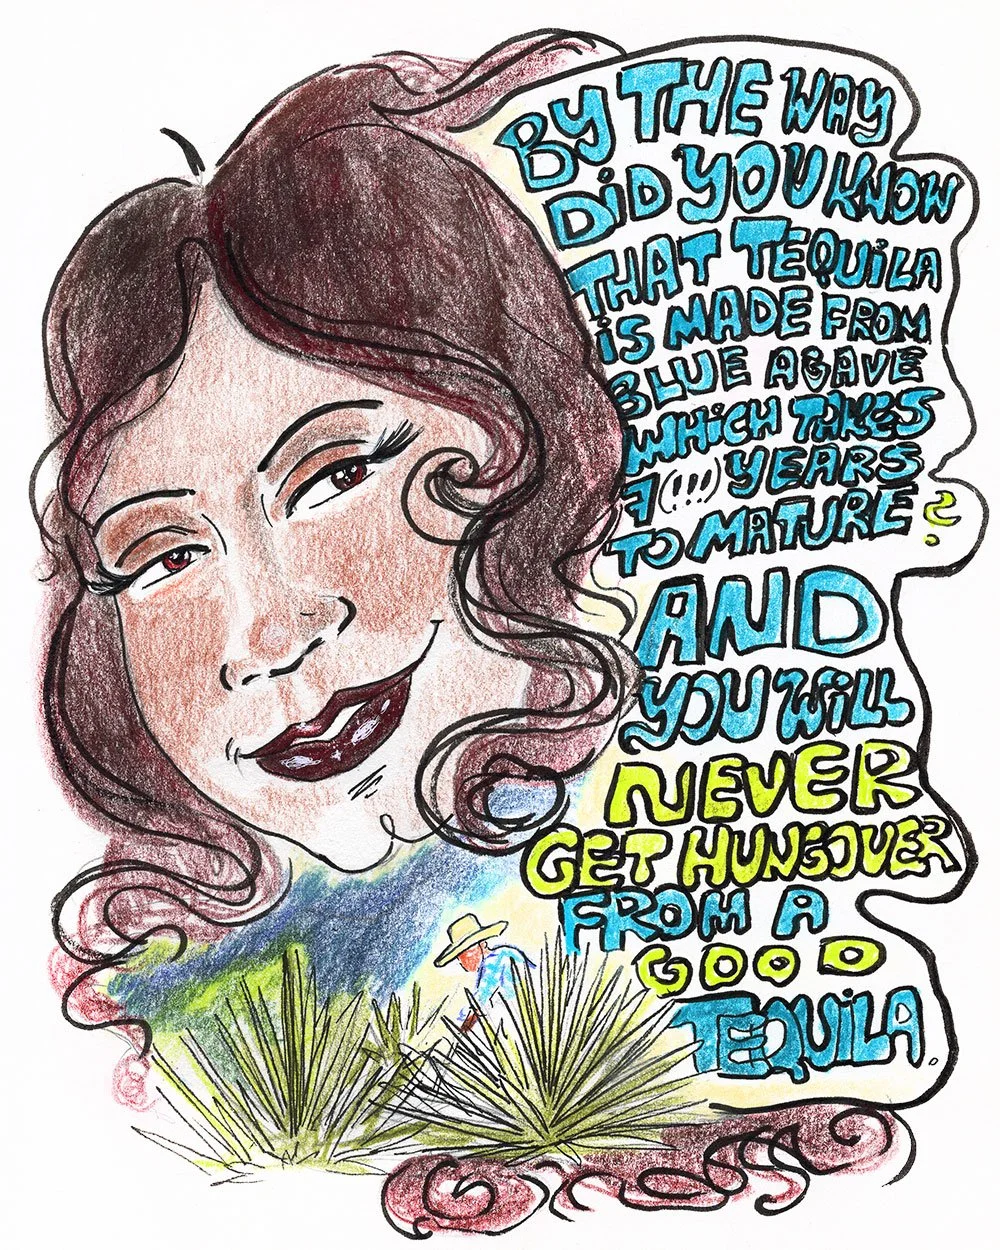 BY THE WAY
DiD YOU KNOW
THAT TEQUiLA
iS MADE FROM
BLUE AGAVE
WHiCH TAKES
7 (!!!) YEARS
TO MATURE ?
AND
YOU WiLL
NEVER
GET HUNGOVER
FROM A
GOOD
TEQUiLA.